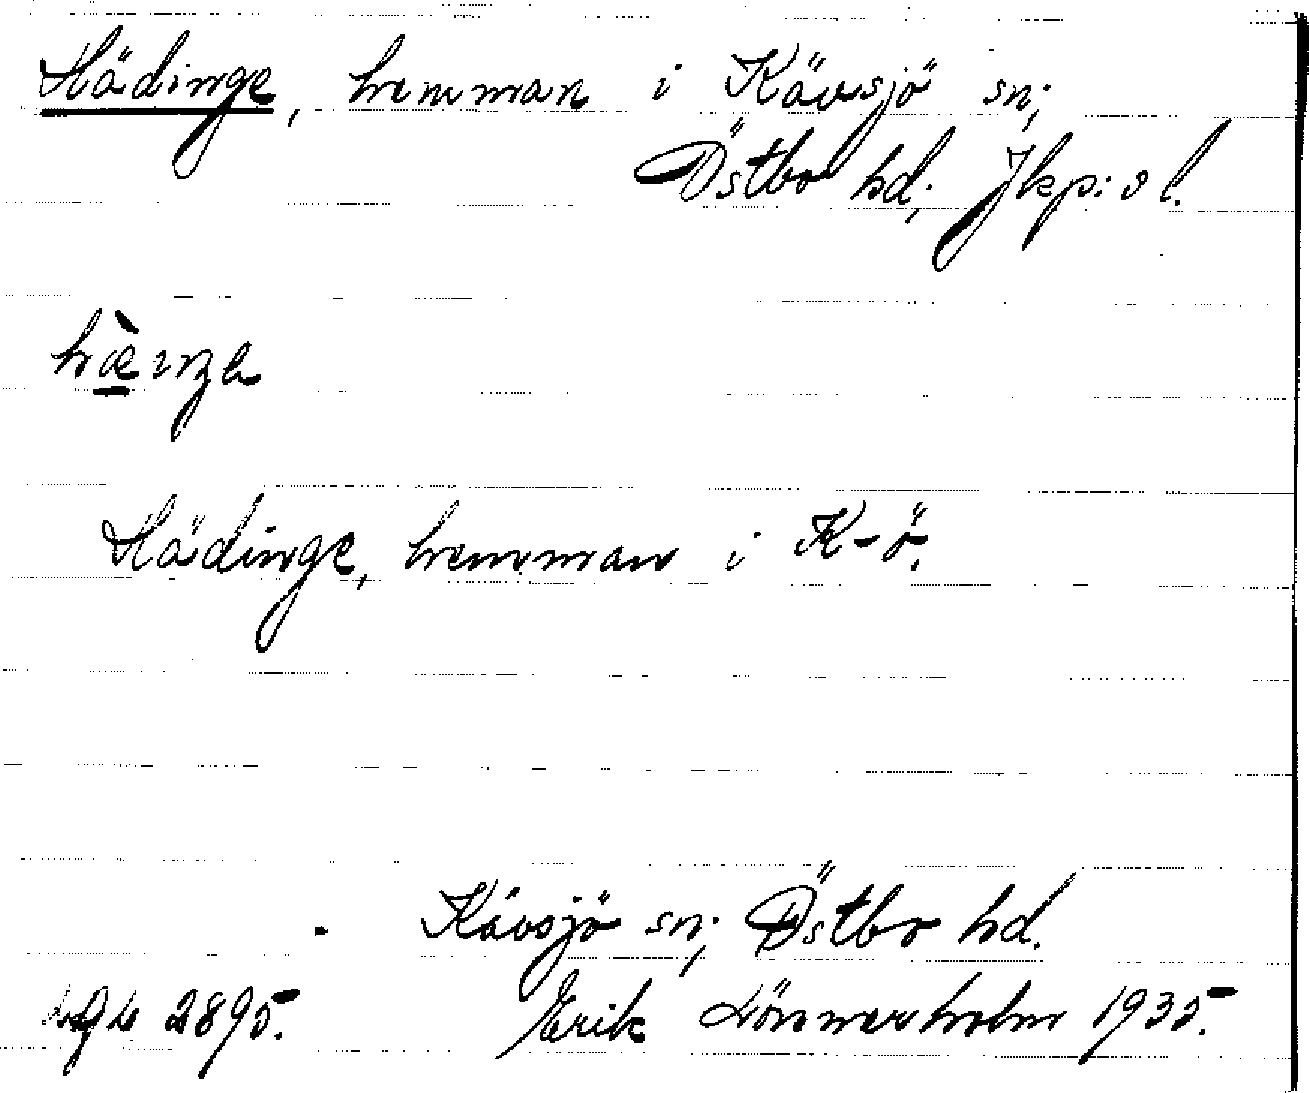 Hädinge, hemman i Kävsjö sn;
Östbo hd; Jkp:s l.
Hädinge, hemman i K-ö.
Kävsjö sn; Östbo hd.
2895. Erik Lönnerholm 1935.